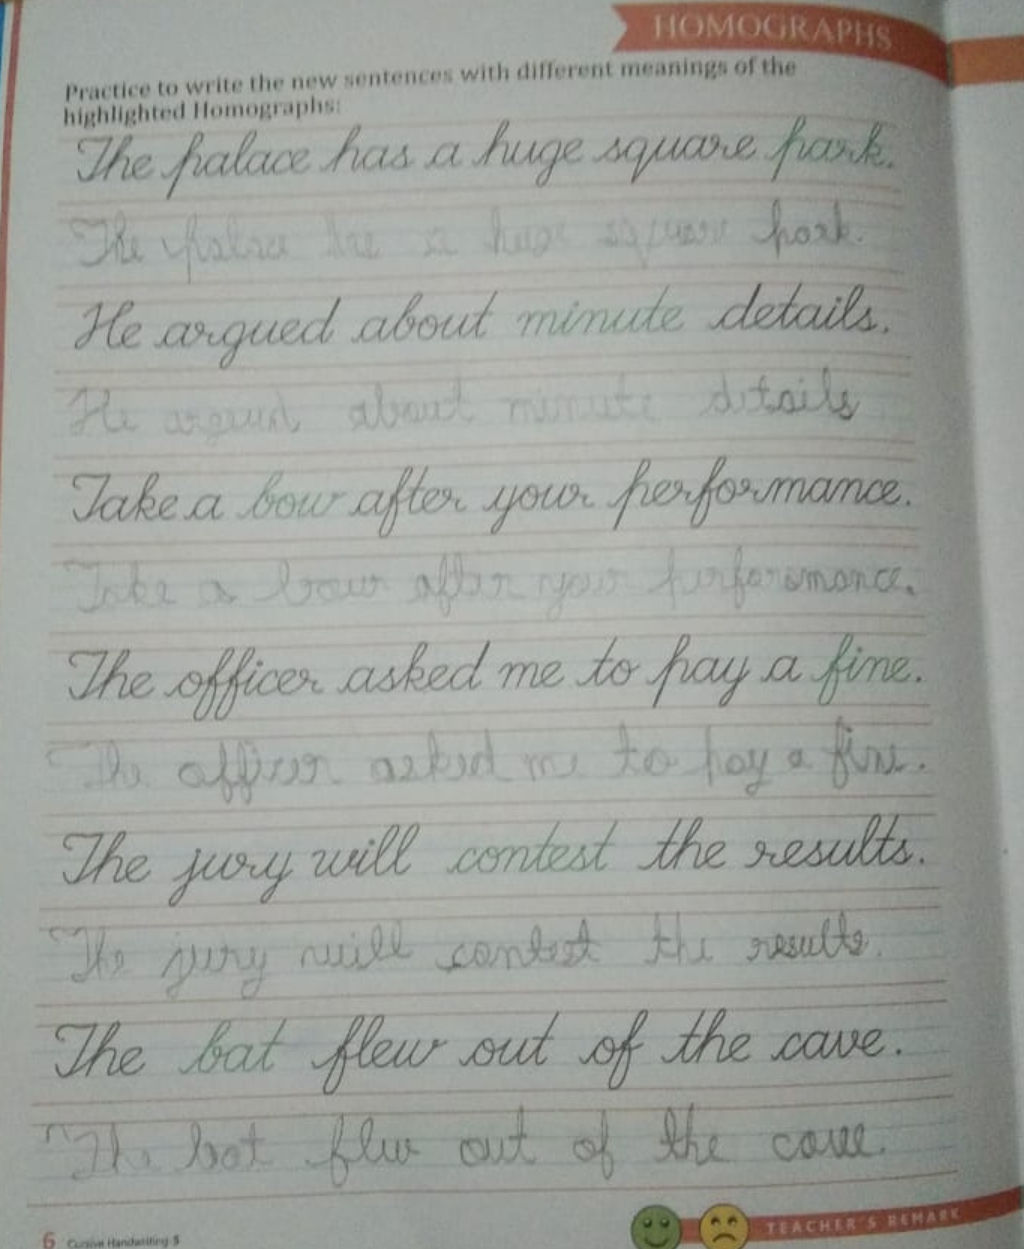 HOMOGRAPHS
Practice to write the new sentences with different meanings of the
highlighted Homographs:
The palace has a huge square park.
The palace a huge square park.
He argued about minute details.
He about minute details
Take a bow after your performance.
Take a bow after your performance.
The officer asked me to pay a fine.
The officer asked me to pay a fine.
The jury will contest the results.
The jury will contest the results.
The bat flew out of the cave.
The bat flew out of the cave.
6 Cursive Handwriting-5
TEACHER'S REMARK